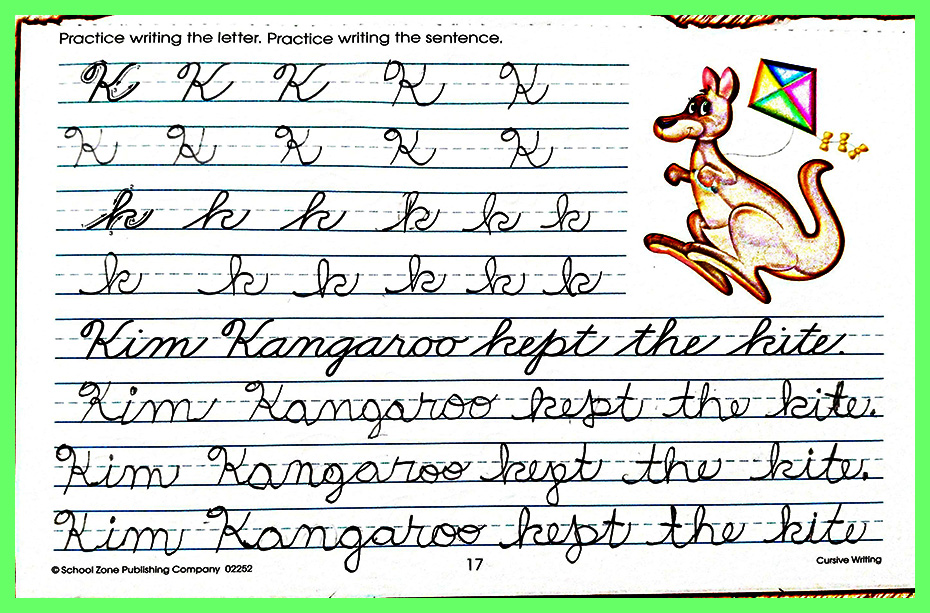 Practice writing the letter. Practice writing the sentence.
K K K K K
K K K K K
k k k k k k
k k k k k k
Kim Kangaroo kept the kite.
Kim Kangaroo kept the kite.
Kim Kangaroo kept the kite.
Kim Kangaroo kept the kite
© School Zone Publishing Company 02252 17 Cursive Writing